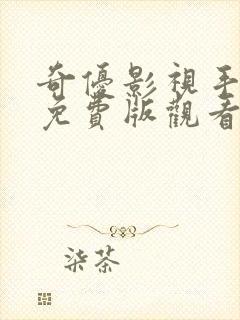 奇優影視手
免費版觀看
柒茶